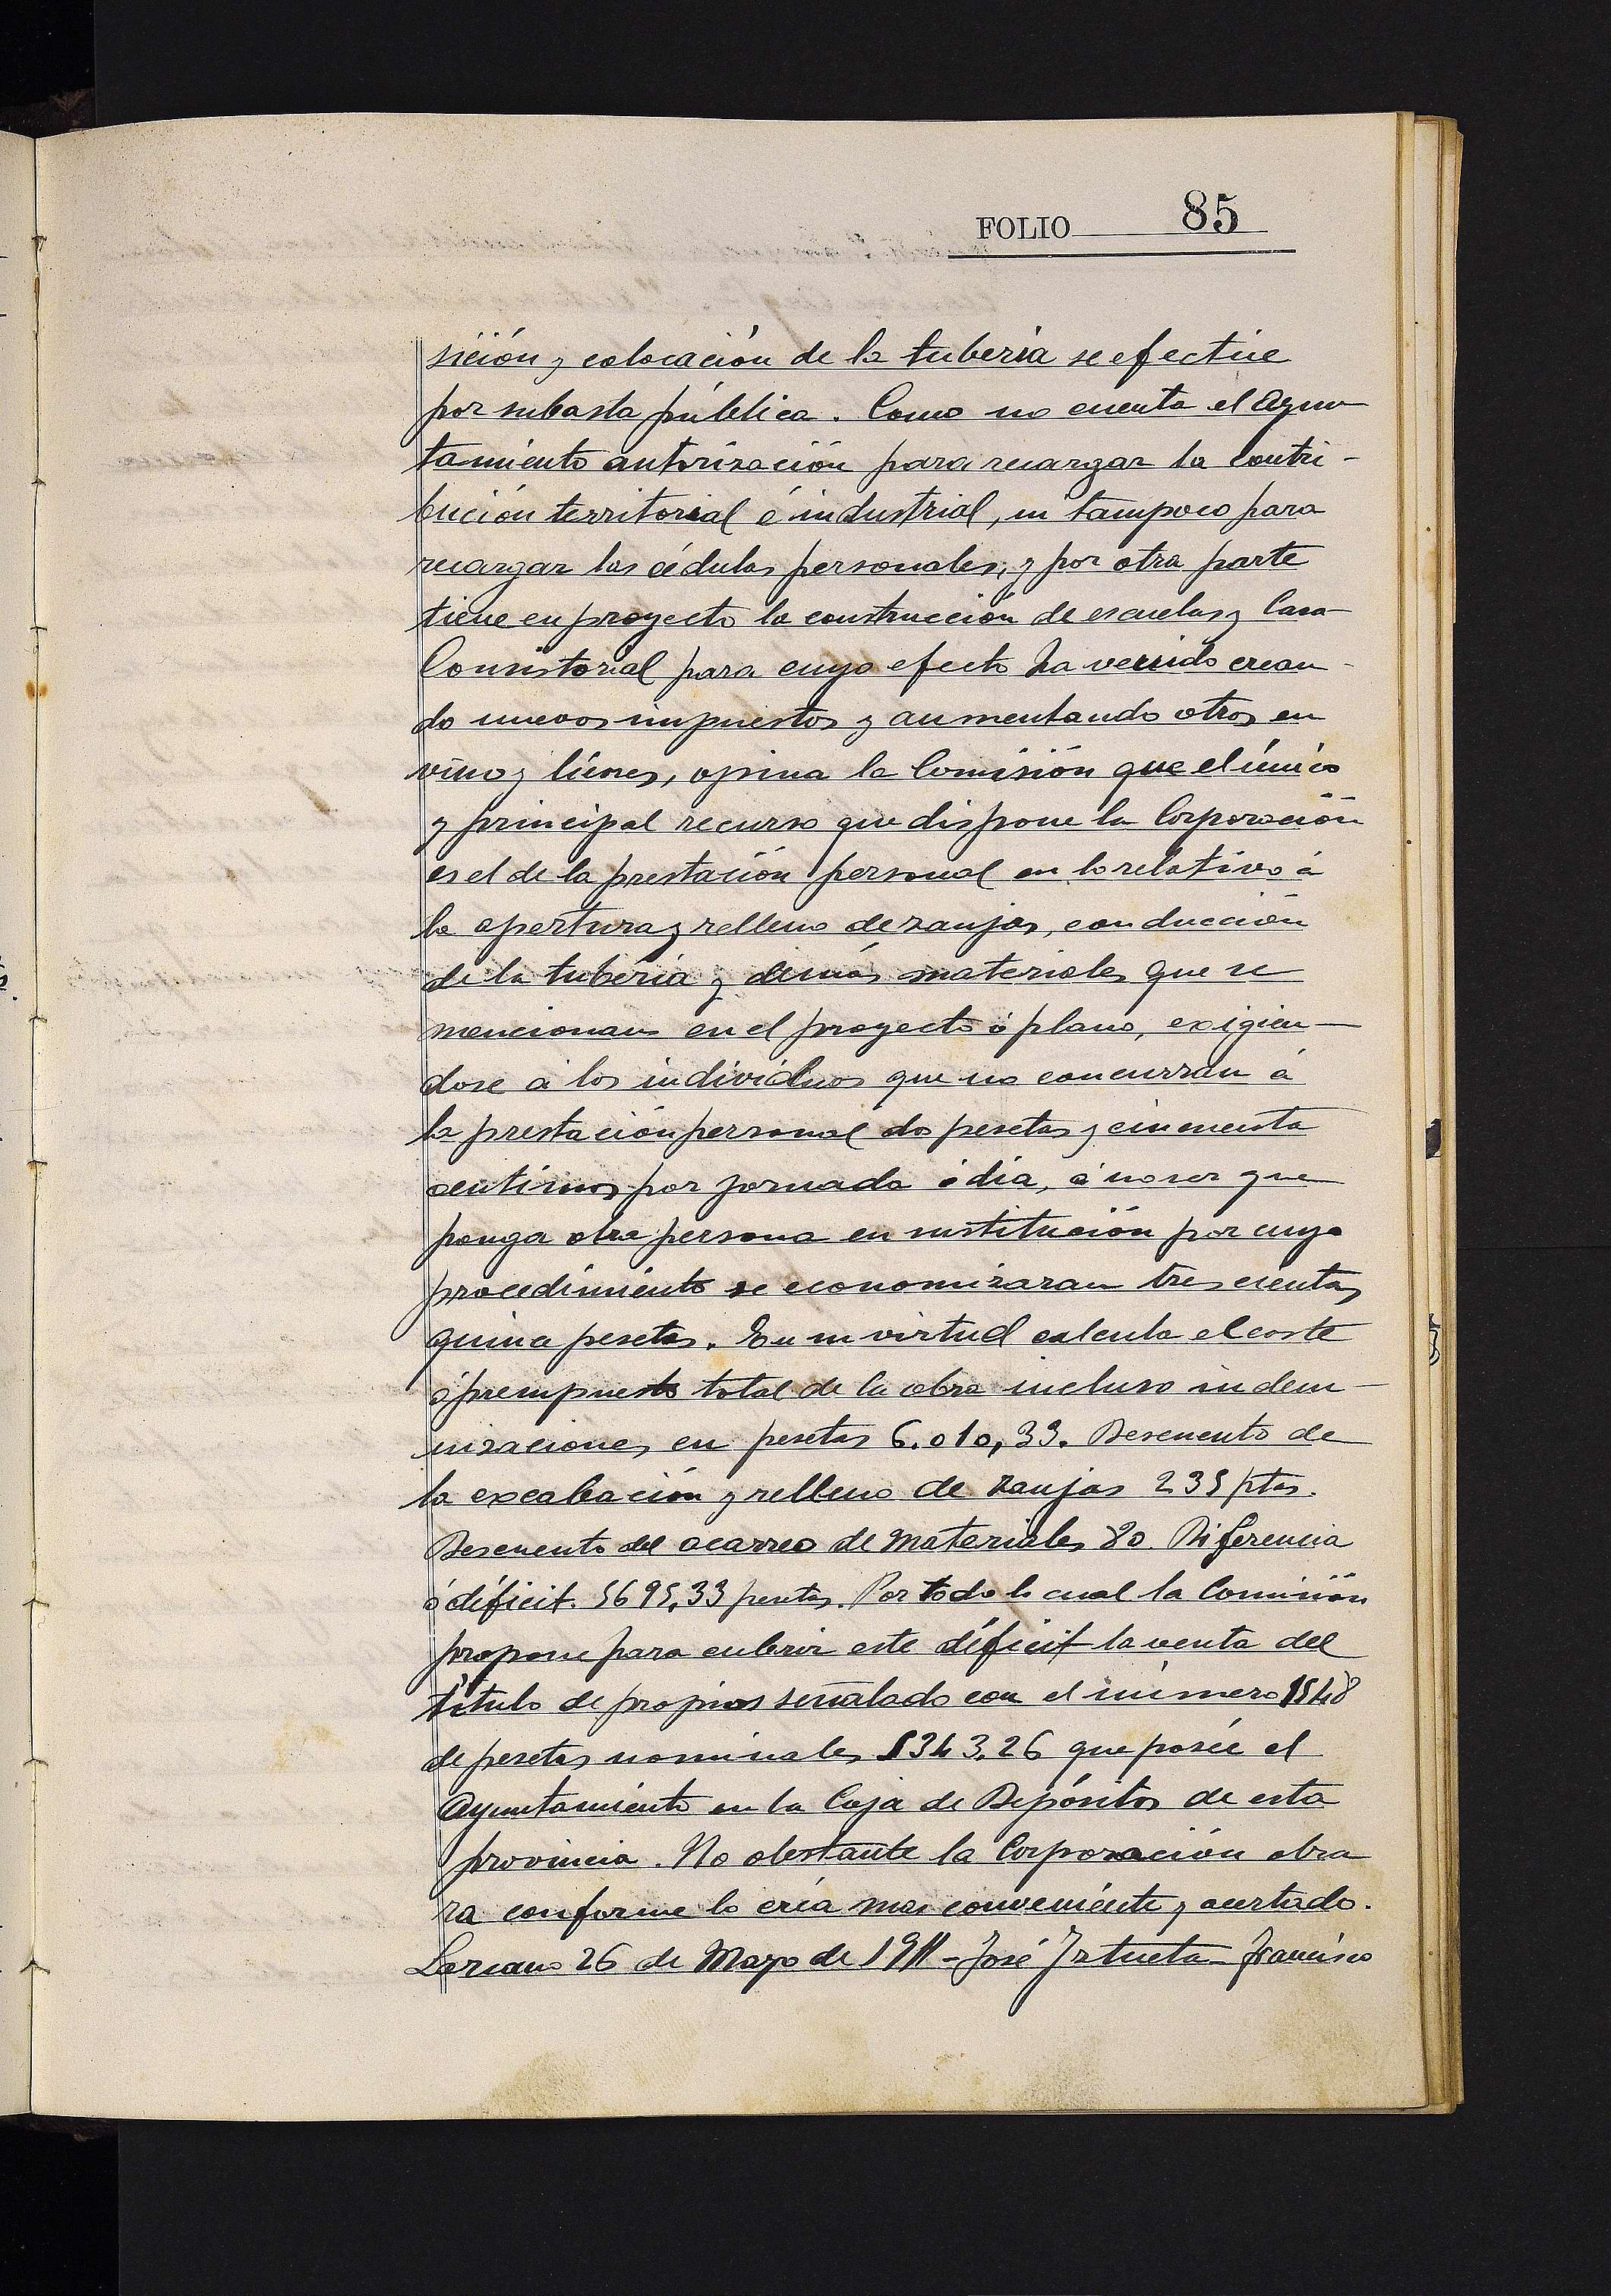 FOLIO 85
sición y colocación de la tubería se efectúe
por subasta pública. Como no cuenta el Ayun
tamiento autorización para recargar la contri-
bución territorial é industrial, ni tampoco para
recargar las cédulas personales; y por otra parte
tiene en proyecto la construcción de escuelas y Casa
Consistorial para cuyo efecto ha venido crean-
do nuevos impuestos y aumentando otros en
vino y licores, opina la Comisión que el único
y principal recurso que dispone la Corporación
es el de la prestación personal en lo relativo á
la apertura y relleno de zanjas, conducción
de la tubería y demás materiales que se
mencionan en el proyecto ó plano, exigien-
dose á los individuos que no concurrán á
la prestación personal dos pesetas y cincuenta
centimos por jornada ó día, á no ser que
ponga otra persona en sustitución por cuyo
procedimiento se economizaran trescientas
quince pesetas. En su virtud calcula el coste
ó presupuesto total de la obra incluso indem-
nizaciones en pesetas 6.010,33. Descuento de
la excabación y relleno de zanjas 235 ptas.
Descuento del acarreo de materiales 80. Diferencia
ó déficit. 5695,33 pesetas. Por todo lo cual la Comisión
propone para cubrir este déficit la venta del
título de propios señalado con el número 1548
de pesetas nominales 5343,26 que posée el
Ayuntamiento en la Caja de Depósitos de esta
provincia. No obstante la Corporación obra
ra conforme lo créa mas conveniente y acertado.
Lezcano 26 de Mayo de 1911 - José Iztueta - Francisco